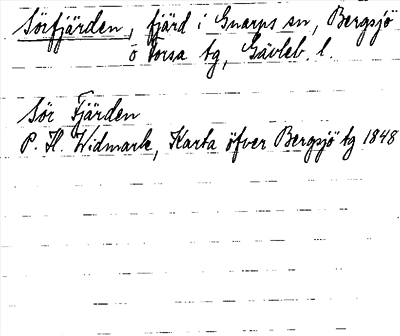 Sörfjärden, fjärd i Gnarps sn, Bergsjö
o Forsa tg, Gävleb. l.
Sör Fjärden
P. H. Widmark, Karta öfver Bergsjö tg 1848